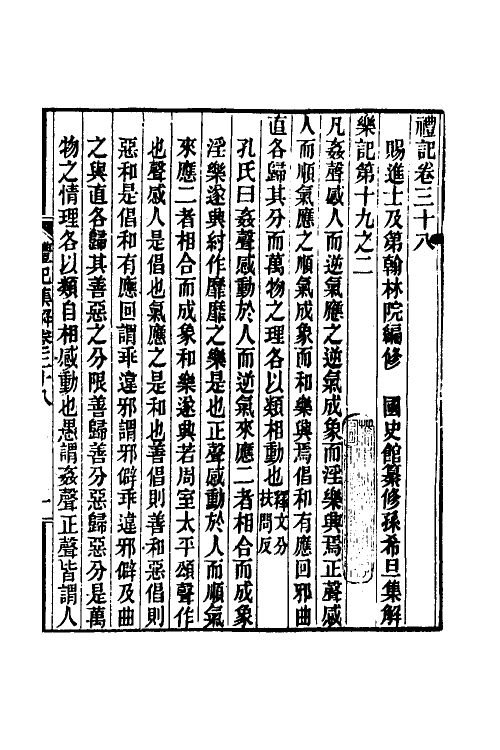 禮記卷三十八
賜進士及第翰林院編修　國史館纂修孫希旦集解
樂記第十九之二
凡姦聲感人而逆氣應之逆氣成象而淫樂興焉正聲感
人而順氣應之順氣成象而和樂興焉倡和有應回邪曲
直各歸其分而萬物之理各以類相動也釋文分扶問反
孔氏曰姦聲感動於人而逆氣來應二者相合而成象
淫樂遂興紂作靡靡之樂是也正聲感動於人而順氣
來應二者相合而成象和樂遂興若周室太平頌聲作
也聲感人是倡也氣應之是和也善倡則善和惡倡則
惡和是倡和有應回謂乖違邪謂邪僻乖違邪僻及曲
之與直各歸其善惡之分限善歸善分惡歸惡分是萬
物之情理各以類自相感動也愚謂姦聲正聲皆謂人
禮記集解卷三十八
一